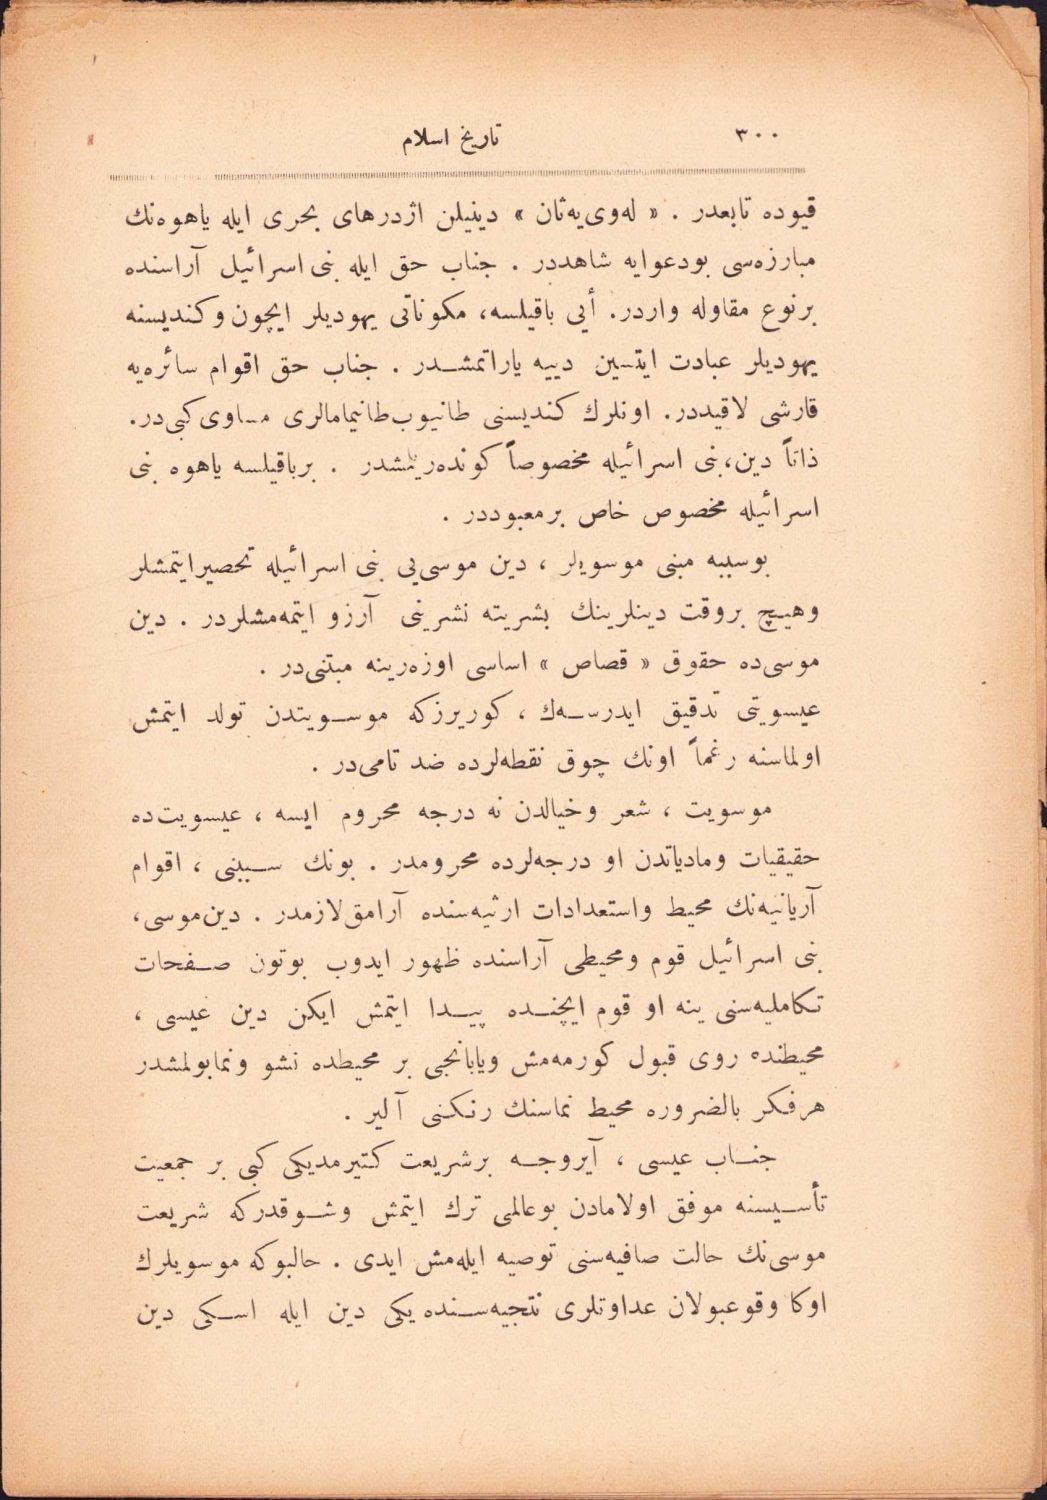 ٣٠٠
تاريخ اسلام
قيوده تابعدر . « له‌وى‌يه‌ثان » دينيلن اژدرهاى بحرى ايله ياهوه‌نك
مبارزه‌سى بودعوايه شاهددر . جناب حق ايله بنى اسرائيل آراسنده
برنوع مقاوله واردر. أيى باقيلسه، مكوناتى يهوديلر ايچون وكنديسنه
يهوديلر عبادت ايتسين دييه ياراتمشدر . جناب حق اقوام سائره‌يه
قارشى لاقيددر. اونلرك كنديسنى طانيوب‌طانيمامالرى مساوى كبى‌در.
ذاتاً دين، بنى اسرائيله مخصوصاً كونده‌ريلمشدر . برباقيلسه ياهوه بنى
اسرائيله مخصوص خاص برمعبوددر .
بوسببه مبنى موسويلر ، دين موسى‌يى بنى اسرائيله تحصيرايتمشلر
وهيچ بروقت دينلرينك بشريته نشرينى آرزو ايتمه‌مشلردر . دين
موسى‌ده حقوق « قصاص » اساسى اوزه‌رينه مبتنى‌در .
عيسويتى تدقيق ايدرسه‌ك ، كوريرزكه موسويتدن تولد ايتمش
اولماسنه رغماً اونك چوق نقطه‌لرده ضد تامى‌در .
موسويت ، شعر وخيالدن نه درجه محروم ايسه ، عيسويت‌ده
حقيقيات ومادياتدن او درجه‌لرده محرومدر . بونك سببنى ، اقوام
آريانيه‌نك محيط واستعدادات ارثيه‌سنده آرامق‌لازمدر . دين‌موسى،
بنى اسرائيل قوم ومحيطى آراسنده ظهور ايدوب بوتون صفحات
تكامليه‌سنى ينه او قوم ايچنده پيدا ايتمش ايكن دين عيسى ،
محيطنده روى قبول كورمه‌مش ويابانجى بر محيطده نشو ونمابولمشدر
هرفكر بالضروره محيط نماسنك رنكنى آلير .
جناب عيسى ، آيروجه برشريعت كتيرمديكى كبى بر جمعيت
تأسيسنه موفق اولامادن بوعالمى ترك ايتمش وشوقدركه شريعت
موسى‌نك حالت صافيه‌سنى توصيه ايله‌مش ايدى . حالبوكه موسويلرك
اوكا وقوعبولان عداوتلرى نتجيه‌سنده يكى دين ايله اسكى دين